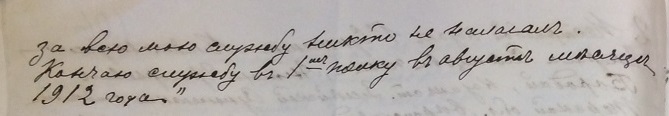 за всю мою службу никто не налагалъ.
Кончаю службу въ 1мъ полку въ августѣ мѣсяцѣ
1912 года"